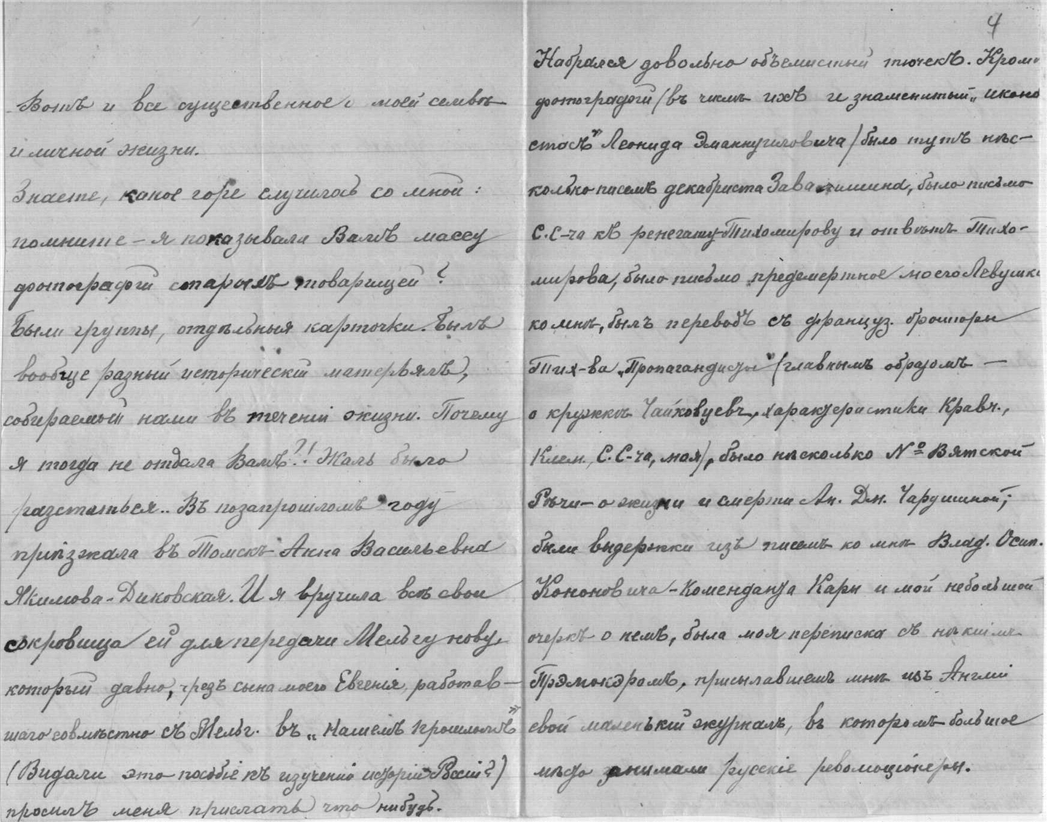 Вотъ и все существенное о моей семьѣ
и личной жизни.
Знаете, какое горе случилось со мной:
помните – я показывала Вамъ массу
фотографій старыхъ товарищей?
Были группы, отдѣльныя карточки. Былъ
вообще разный историческій матерьялъ,
собираемый нами въ теченіи жизни. Почему
я тогда не отдала Вамъ?! Жаль было
разстаться.. Въ позапрошломъ году
пріѣзжала въ Томскъ Анна Васильевна
Якимова-Диковская. И я вручила всѣ свои
сокровища ей для передачи Мельгунову,
который давно, чрезъ сына моего Евгенія, работав-
шаго совмѣстно съ Мельг. въ „Нашемъ Прошломъ"
(Видали это пособіе къ изученію исторіи Россіи?)
просилъ меня прислать что нибудь.
4
Набрался довольно объемистый тючекъ. Кромѣ
фотографій (въ числѣ ихъ и знаменитый „иконо
стасъ" Леонида Эммануиловича) было тутъ нѣс-
колько писемъ декабриста Завалишина, было письмо
С.С-ча къ ренегату Тихомирову и отвѣтъ Тихо-
мирова, было письмо предсмертное моего Левушки
ко мнѣ, былъ переводъ съ француз. брошюры
Тих-ва „Пропагандисты" (главнымъ образомъ –
о кружкѣ Чайковцевъ, характеристики Кравч.,
Клем., С.С-ча, моя), было нѣсколько № Вятской
Рѣчи – о жизни и смерти Ан. Дм. Чарушиной;
были выдержки изъ писемъ ко мнѣ Влад. Осип.
Кононовича – Коменданта Кары и мой небольшой
очеркъ о немъ, была моя переписка съ нѣкіимъ
Прэмокэромъ, присылавшемъ мнѣ изъ Англіи
свой маленькій журналъ, въ которомъ большое
мѣсто занимали русскіе революціонеры.